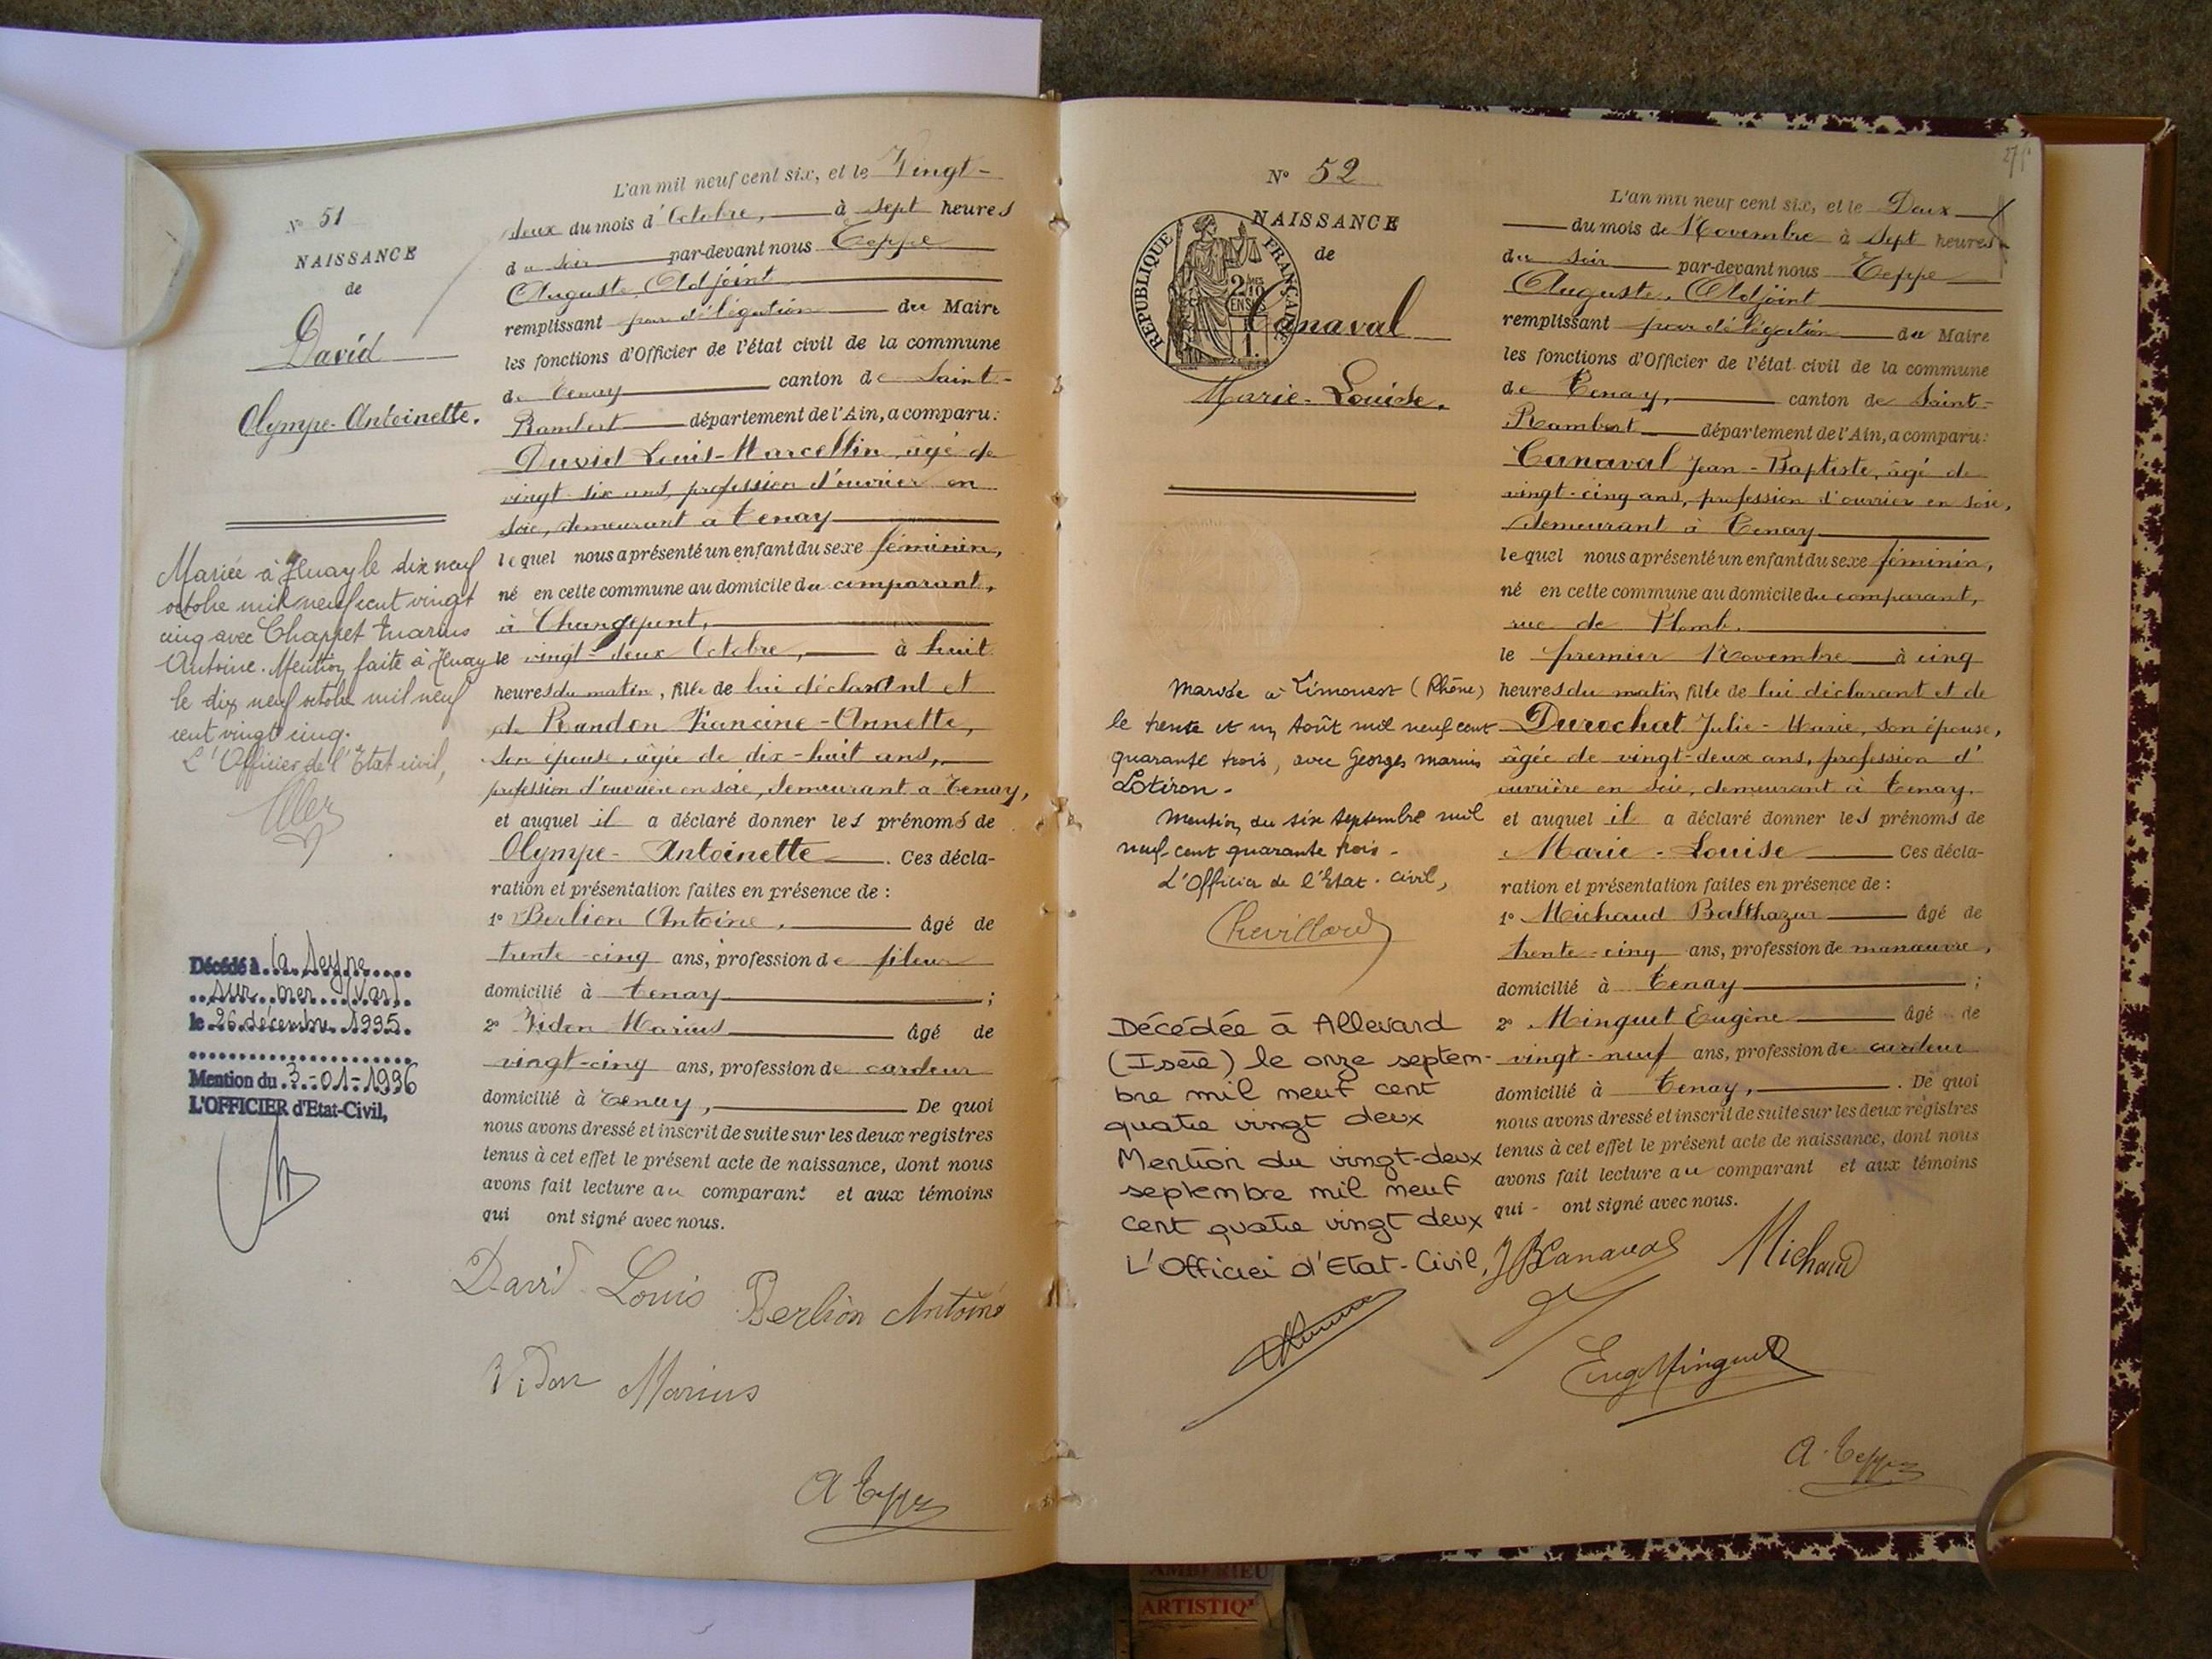 N° 51
NAISSANCE
de
David
Olympe-Antoinette.
Mariée à Tenay le dix neuf
octobre mil neuf cent vingt
cinq avec Chappet Marius
Antoine. Mention faite à Tenay
le dix neuf octobre mil neuf
cent vingt cinq.
L'Officier de l'Etat civil,
Décédé à la Seyne
sur mer (Var).
le 26 décembre 1995.
Mention du 3-01-1996
L'OFFICIER d'Etat-Civil,
L'an mil neuf cent six, et le Vingt-
deux du mois d'Octobre, à sept heures
du soir par-devant nous Teppe
Auguste, Adjoint
remplissant par délégation du Maire
les fonctions d'Officier de l'état civil de la commune
de Tenay canton de Saint-
Rambert département de l'Ain, a comparu:
David Louis-Marcellin, âgé de
vingt-six ans, profession d'ouvrier en
soie, demeurant à Tenay
lequel nous a présenté un enfant du sexe féminin,
né en cette commune au domicile du comparant,
à Changepont,
le vingt-deux Octobre, à huit
heures du matin, fille de lui déclarant et
de Randon Francine-Annette,
son épouse, âgée de dix-huit ans,
profession d'ouvrière en soie, demeurant à Tenay,
et auquel il a déclaré donner les prénoms de
Olympe-Antoinette. Ces décla-
ration et présentation faites en présence de :
1° Berlion Antoine, âgé de
trente-cinq ans, profession de fileur
domicilié à Tenay ;
2° Vidon Marius âgé de
vingt-cinq ans, profession de cardeur
domicilié à Tenay, De quoi
nous avons dressé et inscrit de suite sur les deux registres
tenus à cet effet le présent acte de naissance, dont nous
avons fait lecture au comparant et aux témoins
qui ont signé avec nous.
David Louis Berlion Antoine
Vidon Marius
A Teppe
N° 52
NAISSANCE
de
REPUBLIQUE FRANÇAISE
Canaval
Marie-Louise.
Mariée à Limonest (Rhône)
le trente et un Août mil neuf cent
quarante trois, avec Georges Marius
Lotiron.
Mention du six Septembre mil
neuf cent quarante trois.
L'Officier de l'Etat-civil,
Chevillard
Décédée à Allevard
(Isère) le onze septem-
bre mil neuf cent
quatre vingt deux
Mention du vingt-deux
septembre mil neuf
cent quatre vingt deux
L'Officier d'Etat-Civil,
L'an mil neuf cent six, et le Deux
du mois de Novembre à sept heures
du soir par-devant nous Teppe
Auguste, Adjoint
remplissant par délégation du Maire
les fonctions d'Officier de l'état civil de la commune
de Tenay, canton de Saint-
Rambert département de l'Ain, a comparu:
Canaval Jean-Baptiste, âgé de
vingt-cinq ans, profession d'ouvrier en soie,
demeurant à Tenay
lequel nous a présenté un enfant du sexe féminin,
né en cette commune au domicile du comparant,
rue de Plomb.
le premier Novembre à cinq
heures du matin, fille de lui déclarant et de
Durochat Julie-Marie, son épouse,
âgée de vingt-deux ans, profession d'
ouvrière en soie, demeurant à Tenay.
et auquel il a déclaré donner les prénoms de
Marie-Louise Ces décla-
ration et présentation faites en présence de :
1° Michaud Balthazar âgé de
trente-cinq ans, profession de manœuvre,
domicilié à Tenay ;
2° Minguet Eugène âgé de
vingt-neuf ans, profession de cardeur
domicilié à Tenay, . De quoi
nous avons dressé et inscrit de suite sur les deux registres
tenus à cet effet le présent acte de naissance, dont nous
avons fait lecture au comparant et aux témoins
qui - ont signé avec nous.
JB Canaval Michaud
Eug Minguet
A. Teppe
AMBERIEU
ARTISTIQ